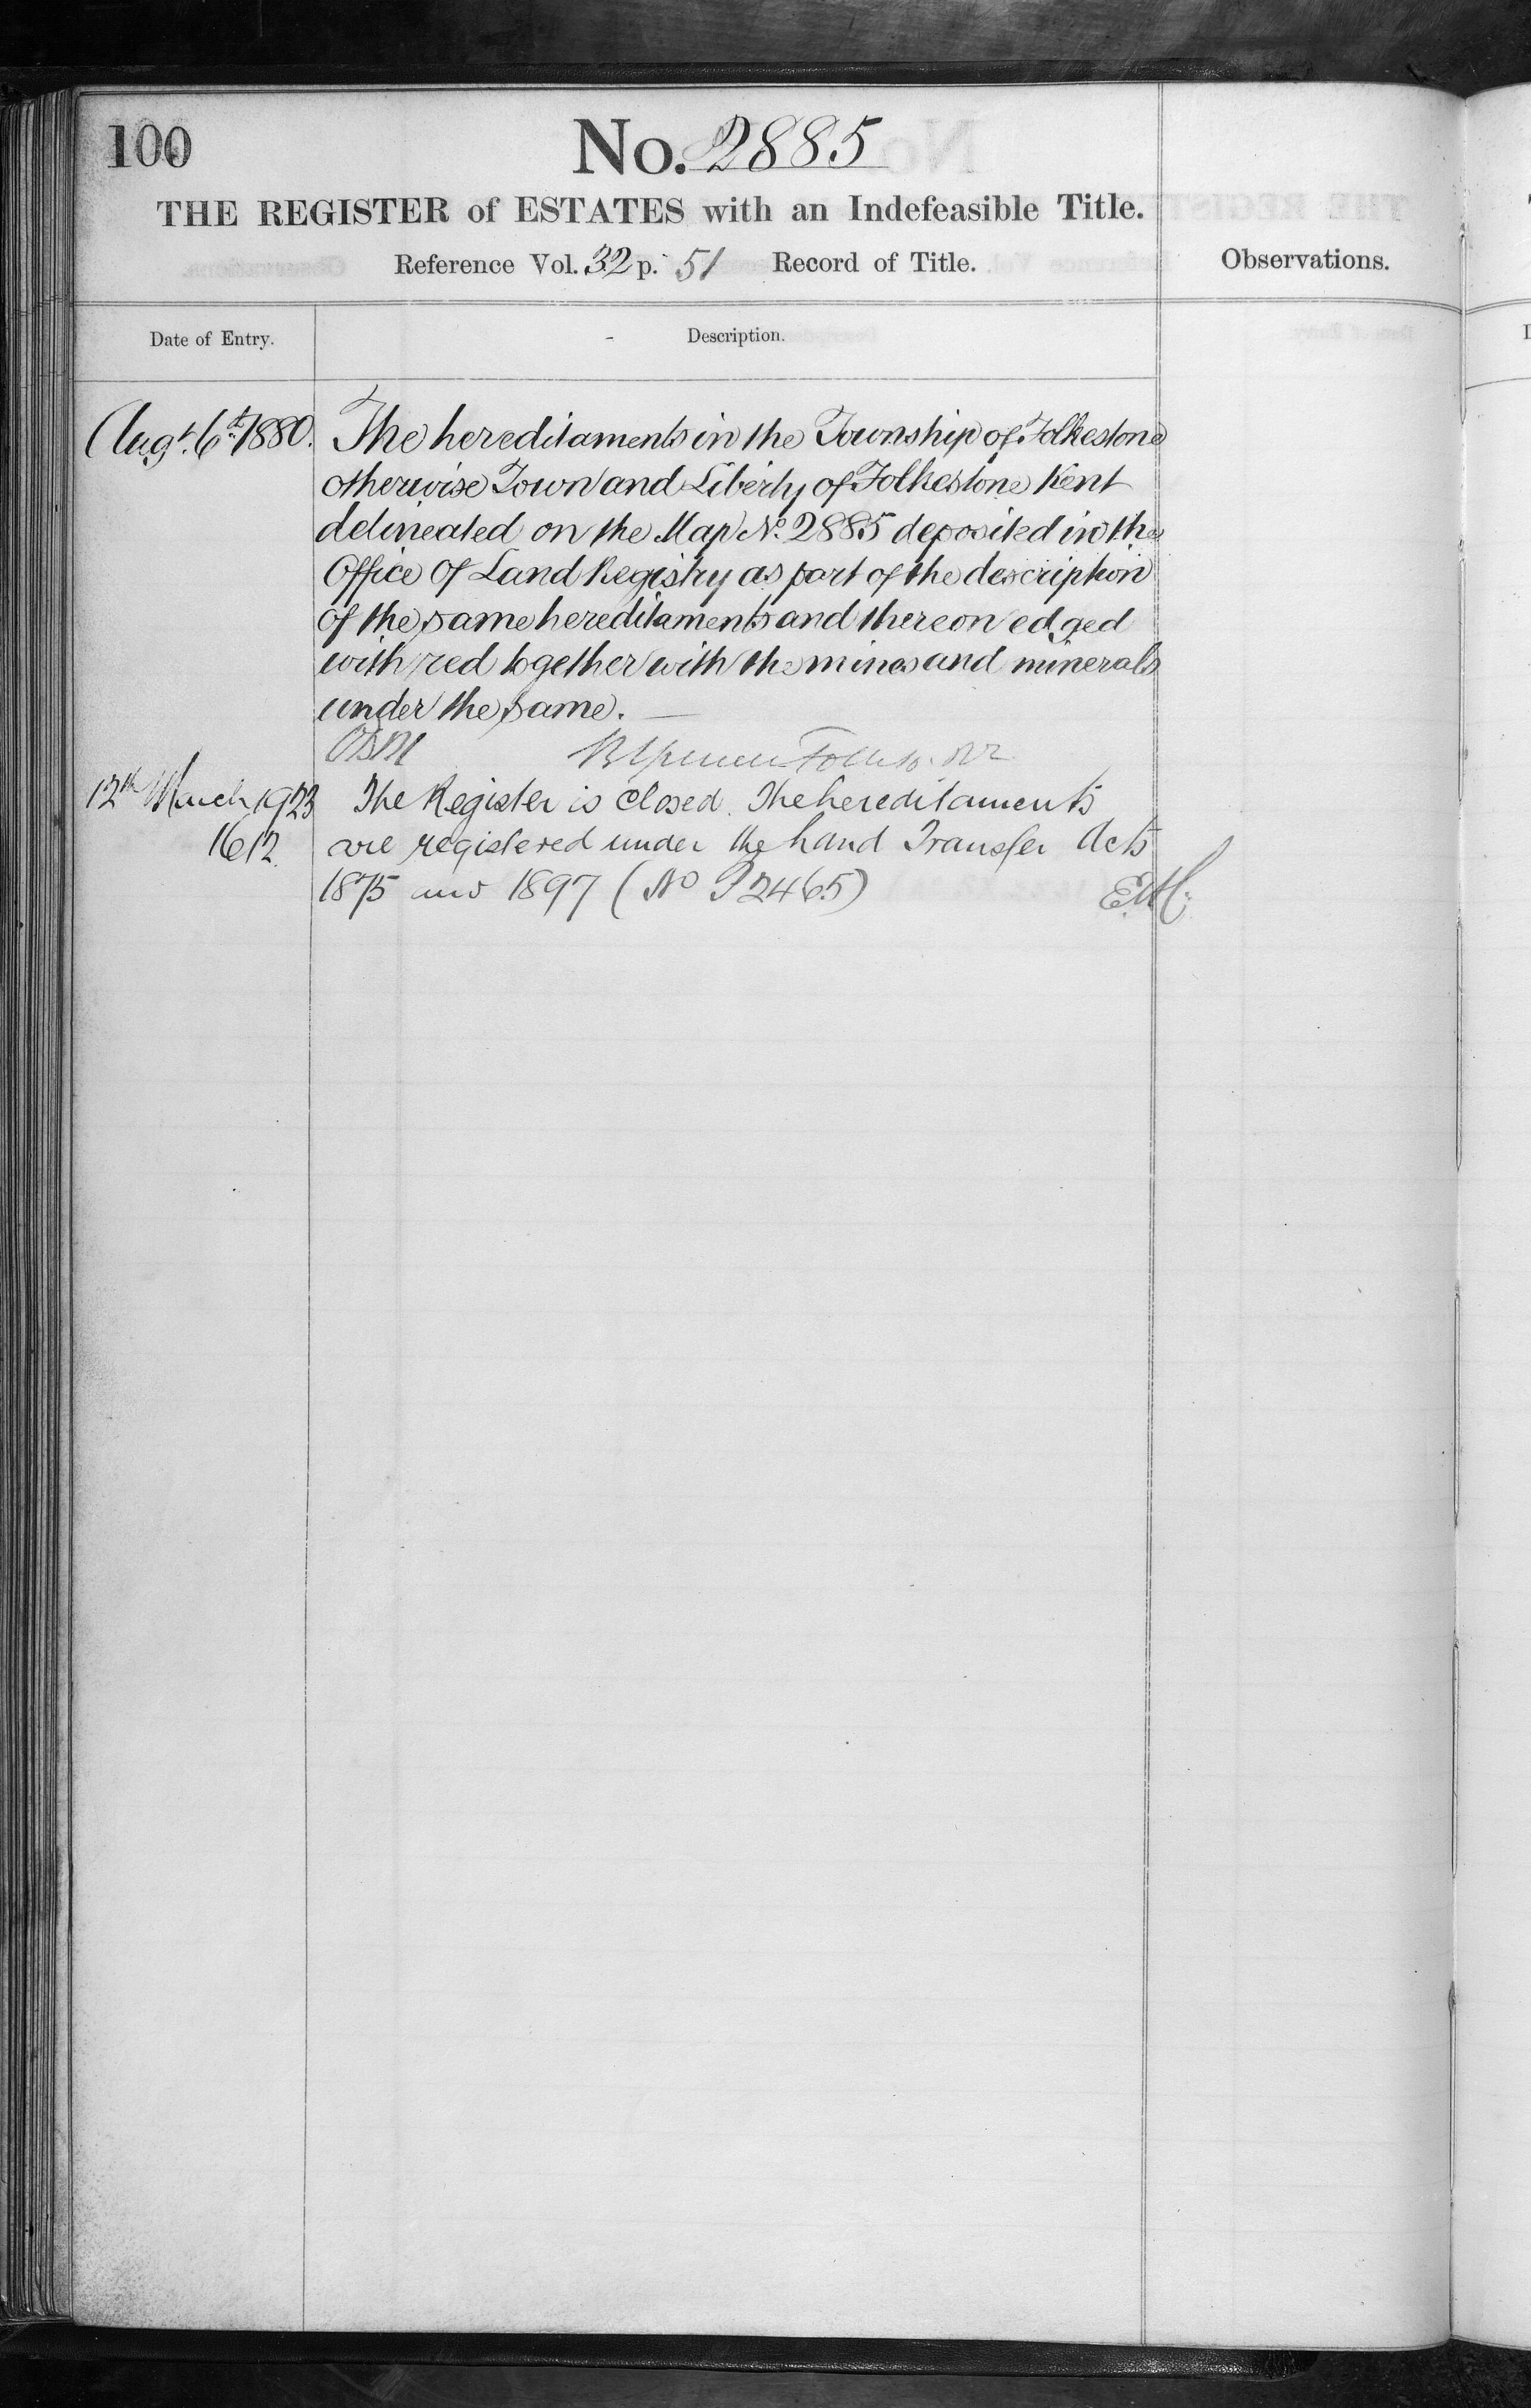 100
No. 2885
THE REGISTER of ESTATES with an Indefeasible Title.
Reference Vol. 32 p. 51 Record of Title.
Observations.
Date of Entry.
Description.
Augt. 6th 1880.
The hereditaments in the Township of Folkestone
otherwise Town and Liberty of Folkestone Kent
delineated on the Map No. 2885 deposited in the
Office of Land Registry as part of the description
of the same hereditaments and thereon edged
with red together with the mines and minerals
under the same.
12th March 1923
1612
The Register is closed. The hereditaments
are registered under the Land Transfer Acts
1875 and 1897 (No P2465)